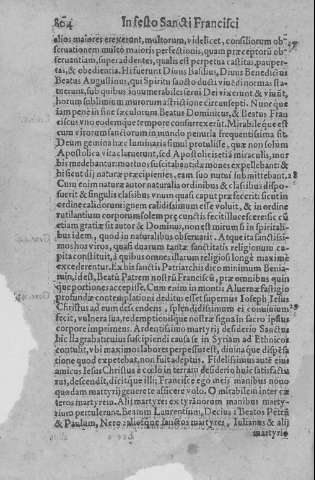 864 In festo Sancti Francisci
alios maiores erexerunt, multorum, videlicet, consiliorum ob-
seruationem multò maioris perfectionis, quàm præceptorũ ob-
seruantiam, superaddentes, qualis est perpetua castitas, pauper-
tas, & obedientia. Hi fuerunt Diuus Basilius, Diuus Benedictus
Beatus Augustinus, qui Spiritu sancto
runt, sub quibus Dei vixerunt & viuũt,
horum sublimium murorum circunsepti. Nunc que
iam penè in fine sæculorum Beatus Dominicus, & Beatus Fran
ciscus vno eodemque tempore consurrexerũt. Mirabile que est
cum virorum sanctorum in mundo penuria frequentissima sit.
Deum gemina hæc luminaria simul protulisse, quæ non solum
Apostolica vita vixerunt, sed Apostolis etiã miraculis, mor
bis medebantur, mortuos suscitabant, dæmones expellebant: &
hi sent dij naturæ præcipientes, eam suo nutui submittebant. 28
Cum enim naturæ autor naturalia ordinibus & classibus dispo-
suerit & singulis classibus vnum quasi caput præfecerit: sicut in
ordine calidorum ignem calidissimum esse voluit, & in ordine
rutilantium corporum solem præ cunctis fecit illucescere: sic cũ
etiam gratiæ sit autor & Dominus, non est mirum si in spiritali-
bus idem, quod in naturalibus obseruarit. Atque ita sanctissi-
mos hos viros, quasi duarum tantæ sanctitatis religionum ca-
pita constituit, à quibus omnes, illarum religiosi longè maximè
excederentur. Ex his sanctis Patriarchis dico minimum Benia-
min, id est, Beatũ Patrem nostrũ Franciscũ, præ omnibus quin
que portiones accepisse. Cum enim in monte Aluernæ fastigio
profundæ contemplationi deditus esset supernus Ioseph Iesus
Christus ad eum descendens, splendidissimum ei conuiuium 29
fecit, vulnera sua, redemptionisque nostræ signa in sacro ipsius
corpore imprimens. Ardentissimo martyrij desiderio Sanctus
hic flagrabat: cuius suscipiendi causa se in Syriam ad Ethnicos
contulit, vbi maximos labores perpessus est, diuina que dispẽsa
tione quod expetebat, non fuit adeptus. Fidelissimus autẽ eius
amicus Iesus Christus è cœlo in terram desiderio huic satisfactu
rus, descendit, dicitque illi; Francisce ego meis manibus nouo
quodam martyrij genere te afficere volo. O mirabilem inter cæ
teros martyrem. Alij martyres ex tyrannorum manibus marty-
rium pertulerunt. Beatum Laurentium, Decius: Beatos Petrũ
& Paulum, Nero: aliosque sanctos martyres, Iulianus & alij
martyrio